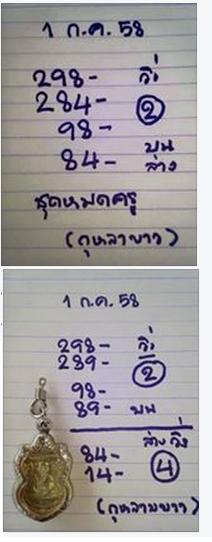 1 ก.ค. 58
298- วิ่
284- ②
98-
84- บน
ล่าง
ชุดหมดครู
(กุหลาบขาว)
1 ก.ค. 58
298- วิ่
289- ②
98-
89- บน
84- ล่าง วิ่ง
14- ④
(กุหลาบขาว)